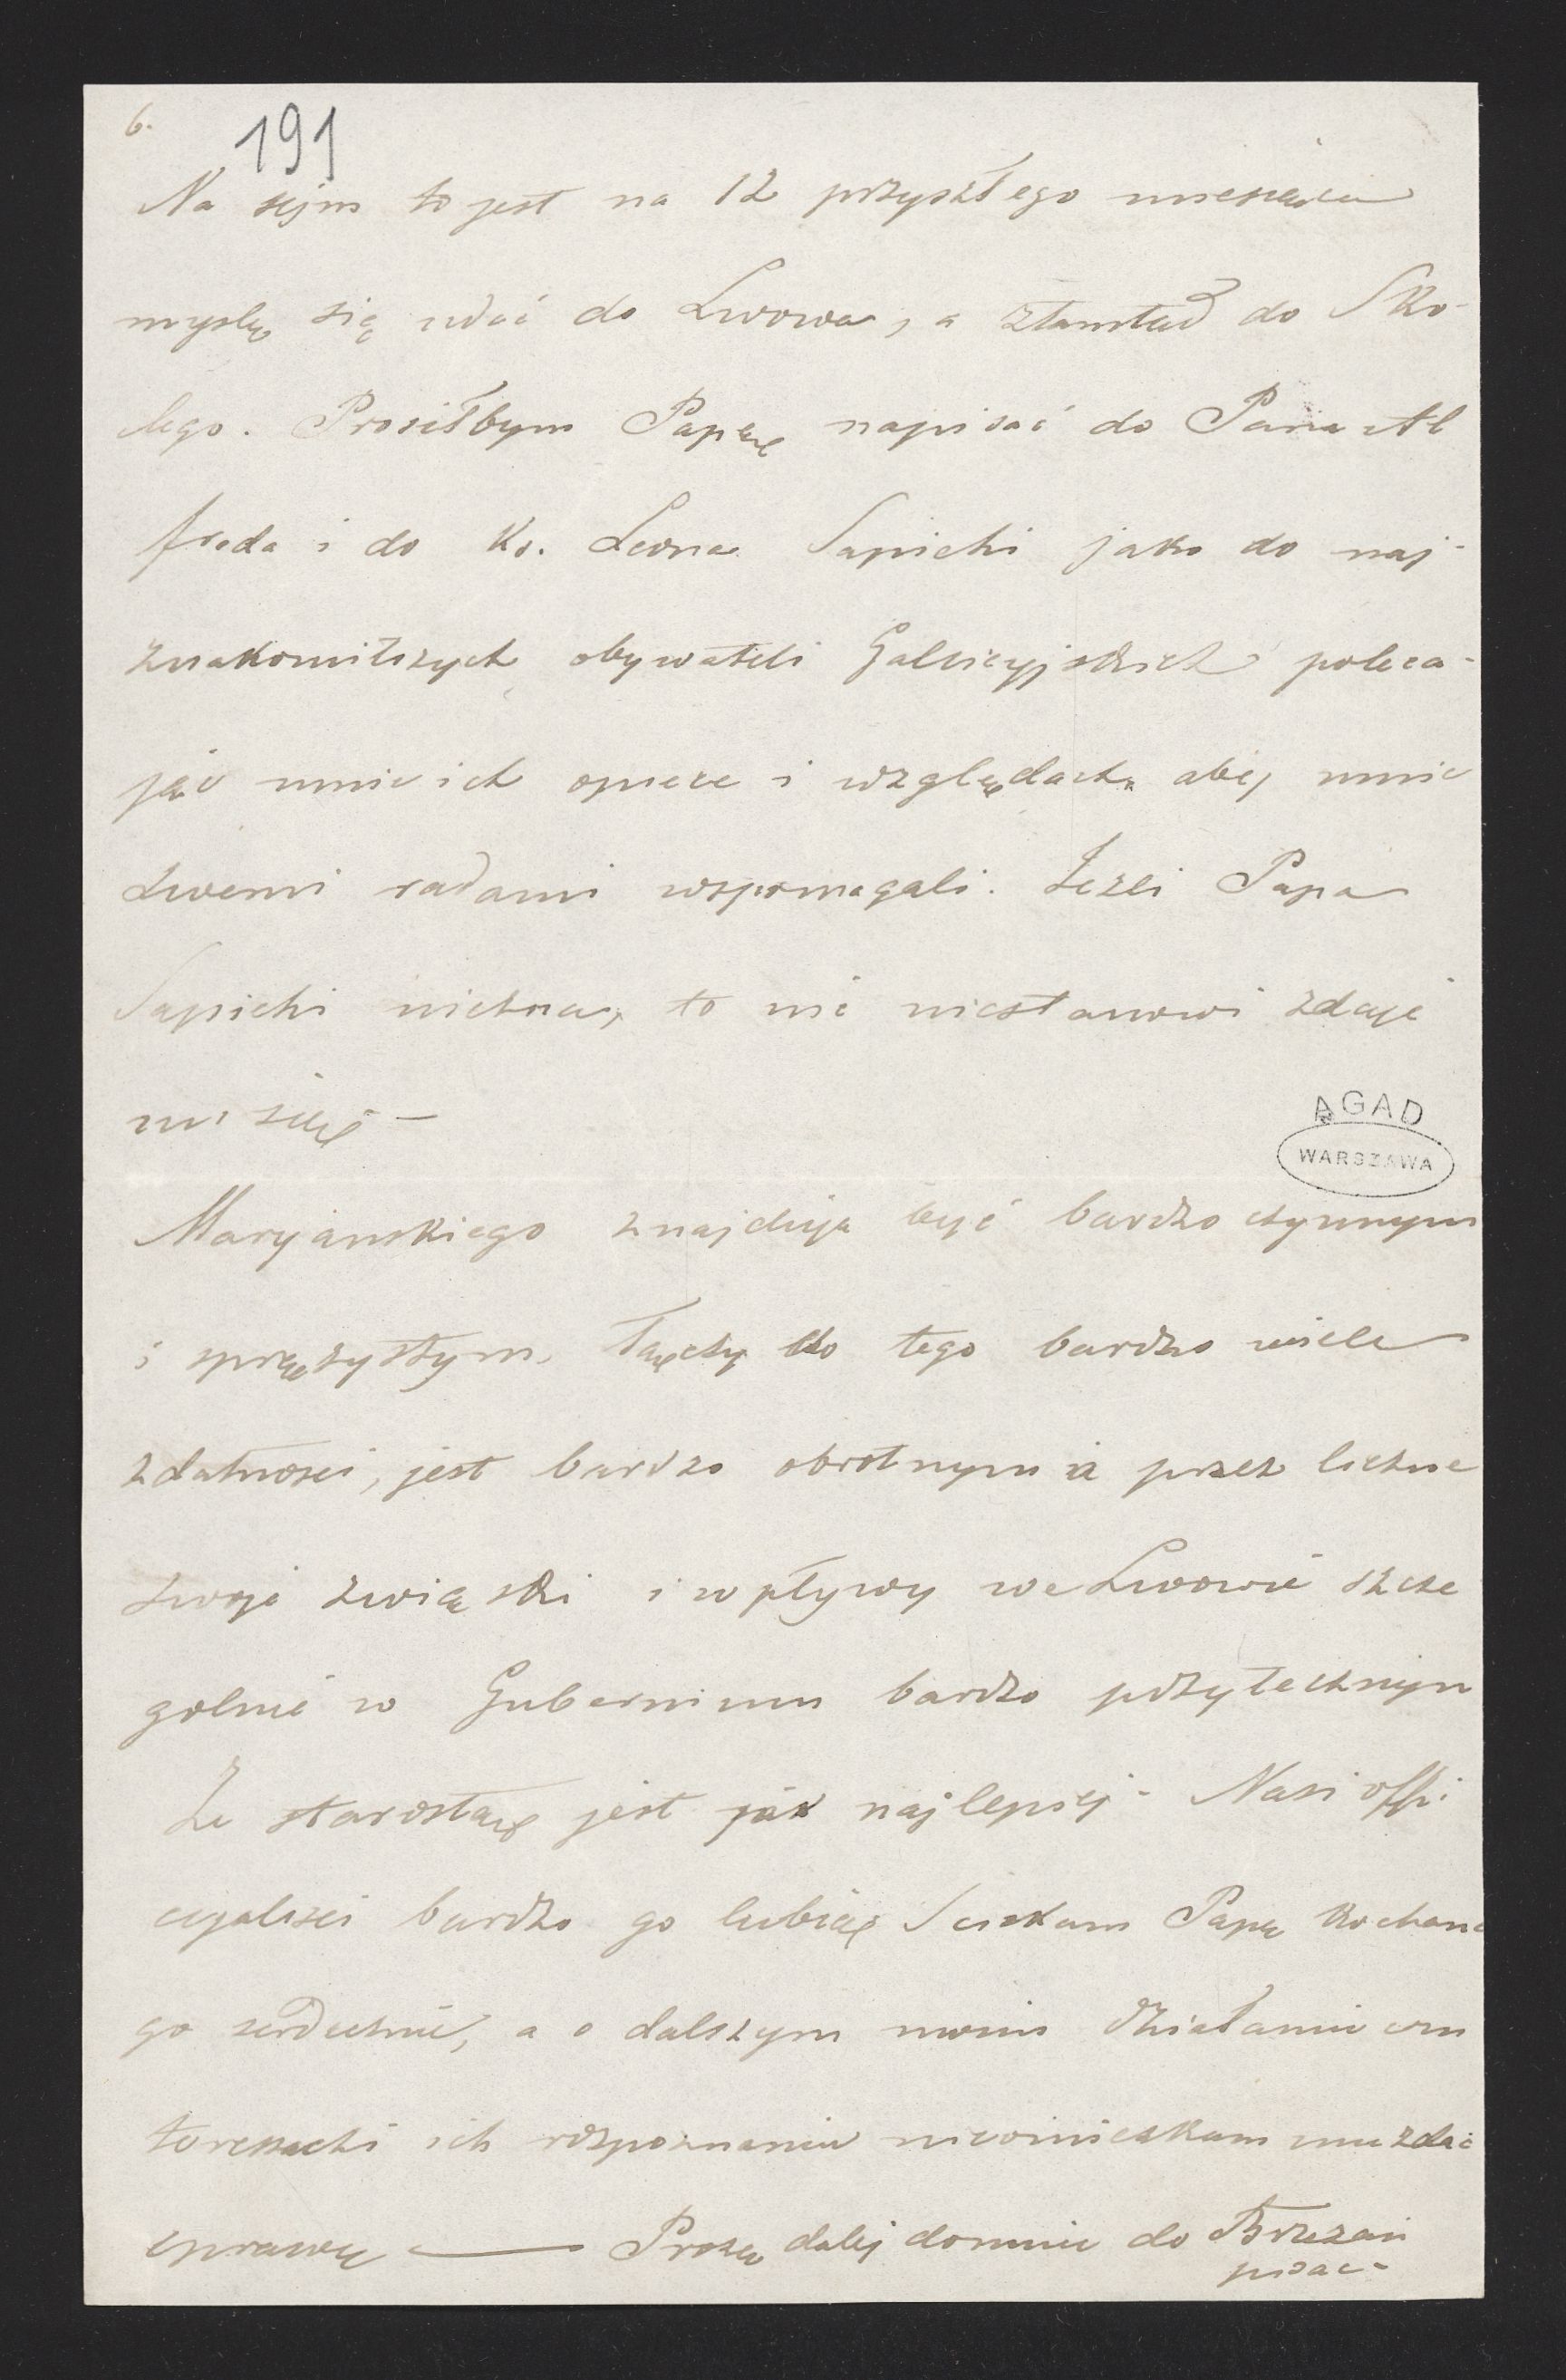 6.
191
Na sejm to jest na 12 przyszłego miesiąca
myślę się udać do Lwowa, a ztamtąd do Sko-
lego. Prosiłbym Papę napisać do Pana Al
freda i do Ks. Leona Sapiehi jako do naj-
znakomitszych obywateli Galicyjskich poleca-
jąc mnie ich opiece i względach, aby mnie
swemi radami wspomagali. Jeżli Papa
Sapiehi niezna, to nic niestanowi zdaje
mi się —
AGAD
WARSZAWA
Maryanskiego znajduja być bardzo czynnym
i sprężystym, łączy do tego bardzo wiele
zdatnosci, jest bardzo obrotnym i przez liczne
swoje związki i wpływy we Lwowie szcze
golnie w Gubernium bardzo pożytecznym
Ze starostą jest jak najlepiej - Nasi offi-
cyalisci bardzo go lubią Sciskam Papę kochane
go serdecznie, a o dalszym moim działaniu
ich rozpoznaniu nieomieszkam mu zdać
sprawę — Proszę dalej do mnie do Brzezan
pisac -